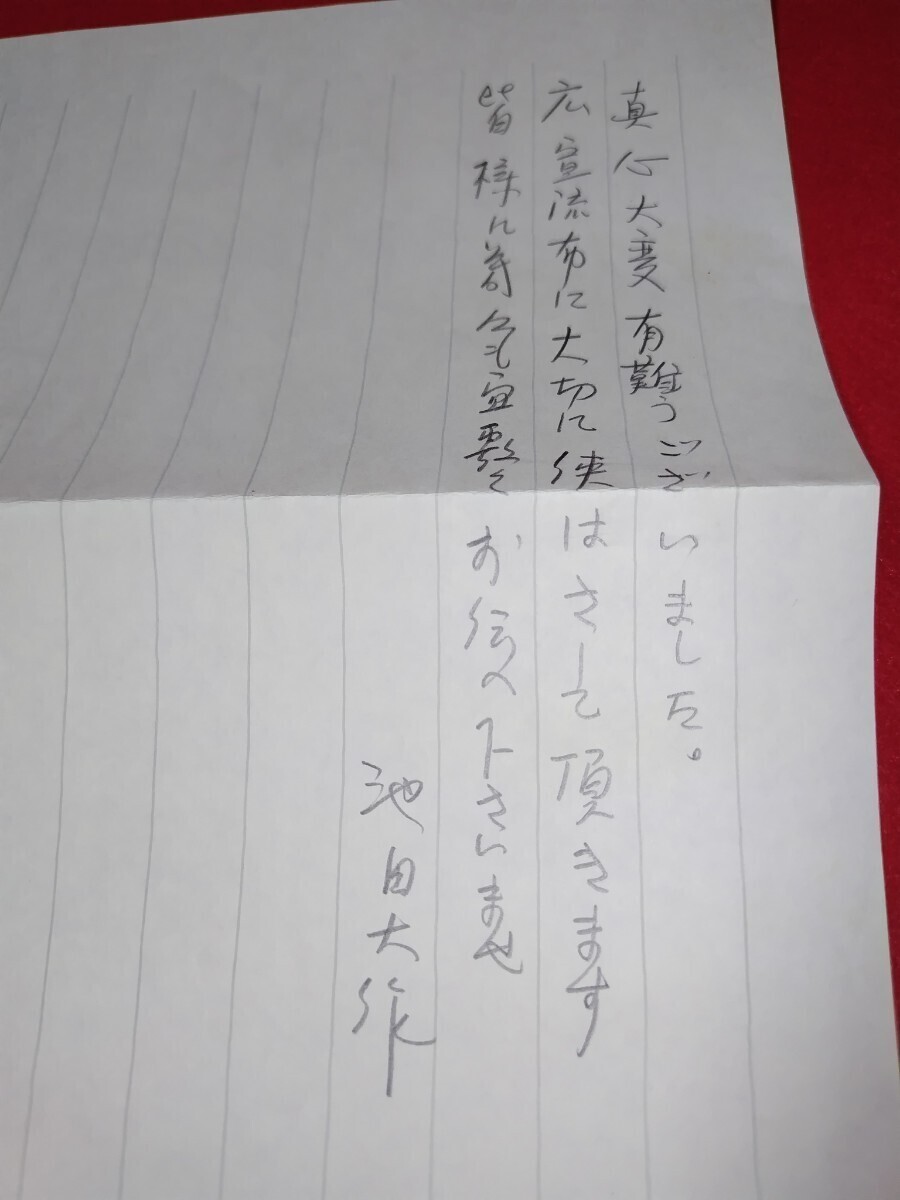 真心大変有難うございました。
広宣流布に大切に使はさして頂きます
皆様に何ん宜敷くお伝へ下さいませ
池田大作